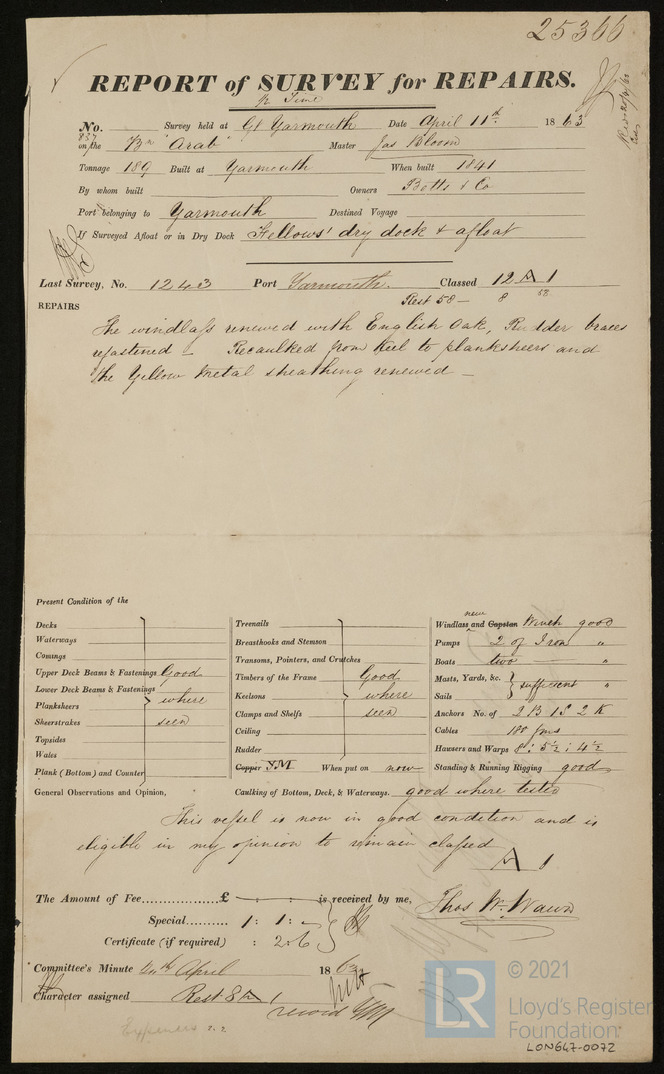 25366
REPORT of SURVEY for REPAIRS.
No. 837 Survey held at Gt Yarmouth Date April 11th 1863
on the Bn "Arab" Master Jas Bloom
Tonnage 189 Built at Yarmouth When built 1841
By whom built Owners Botts & Co
Port belonging to Yarmouth Destined Voyage
If Surveyed Afloat or in Dry Dock Fellows' dry dock & afloat
Last Survey, No. 1243 Port Yarmouth. Classed 12 A 1
Rest 50 - 8 58
REPAIRS
The windlass renewed with English Oak, Rudder braces
refastened - Recaulked from Keel to planksheers and
the Yellow Metal sheathing renewed -
Present Condition of the
Decks
Waterways
Comings
Upper Deck Beams & Fastenings Good
Lower Deck Beams & Fastenings
Planksheers where
Sheerstrakes seen
Topsides
Wales
Plank (Bottom) and Counter
Treenails
Breasthooks and Stemson
Transoms, Pointers, and Crutches
Timbers of the Frame Good
Keelsons where
Clamps and Shelfs seen
Ceiling
Rudder
Copper YM When put on now
Windlass new and Capstan Winch good
Pumps 2 of Iron "
Boats two "
Masts, Yards, &c. sufficient "
Sails
Anchors No. of 2 B 1 S 2 K
Cables 180 fms
Hawsers and Warps 8 : 5½ : 4½
Standing & Running Rigging good
General Observations and Opinion, Caulking of Bottom, Deck, & Waterways. good where tested
This vessel is now in good condition and is
eligible in my opinion to remain classed
A 1
The Amount of Fee................£ is received by me, Thos Wm Wawn
Special......... 1 : 1 : -
Certificate (if required) : 2 . 6
Committee's Minute April 1863
Character assigned Rest 8 A 1
record YM
Expenses
LR © 2021
Lloyd's Register
Foundation
LON647-0072